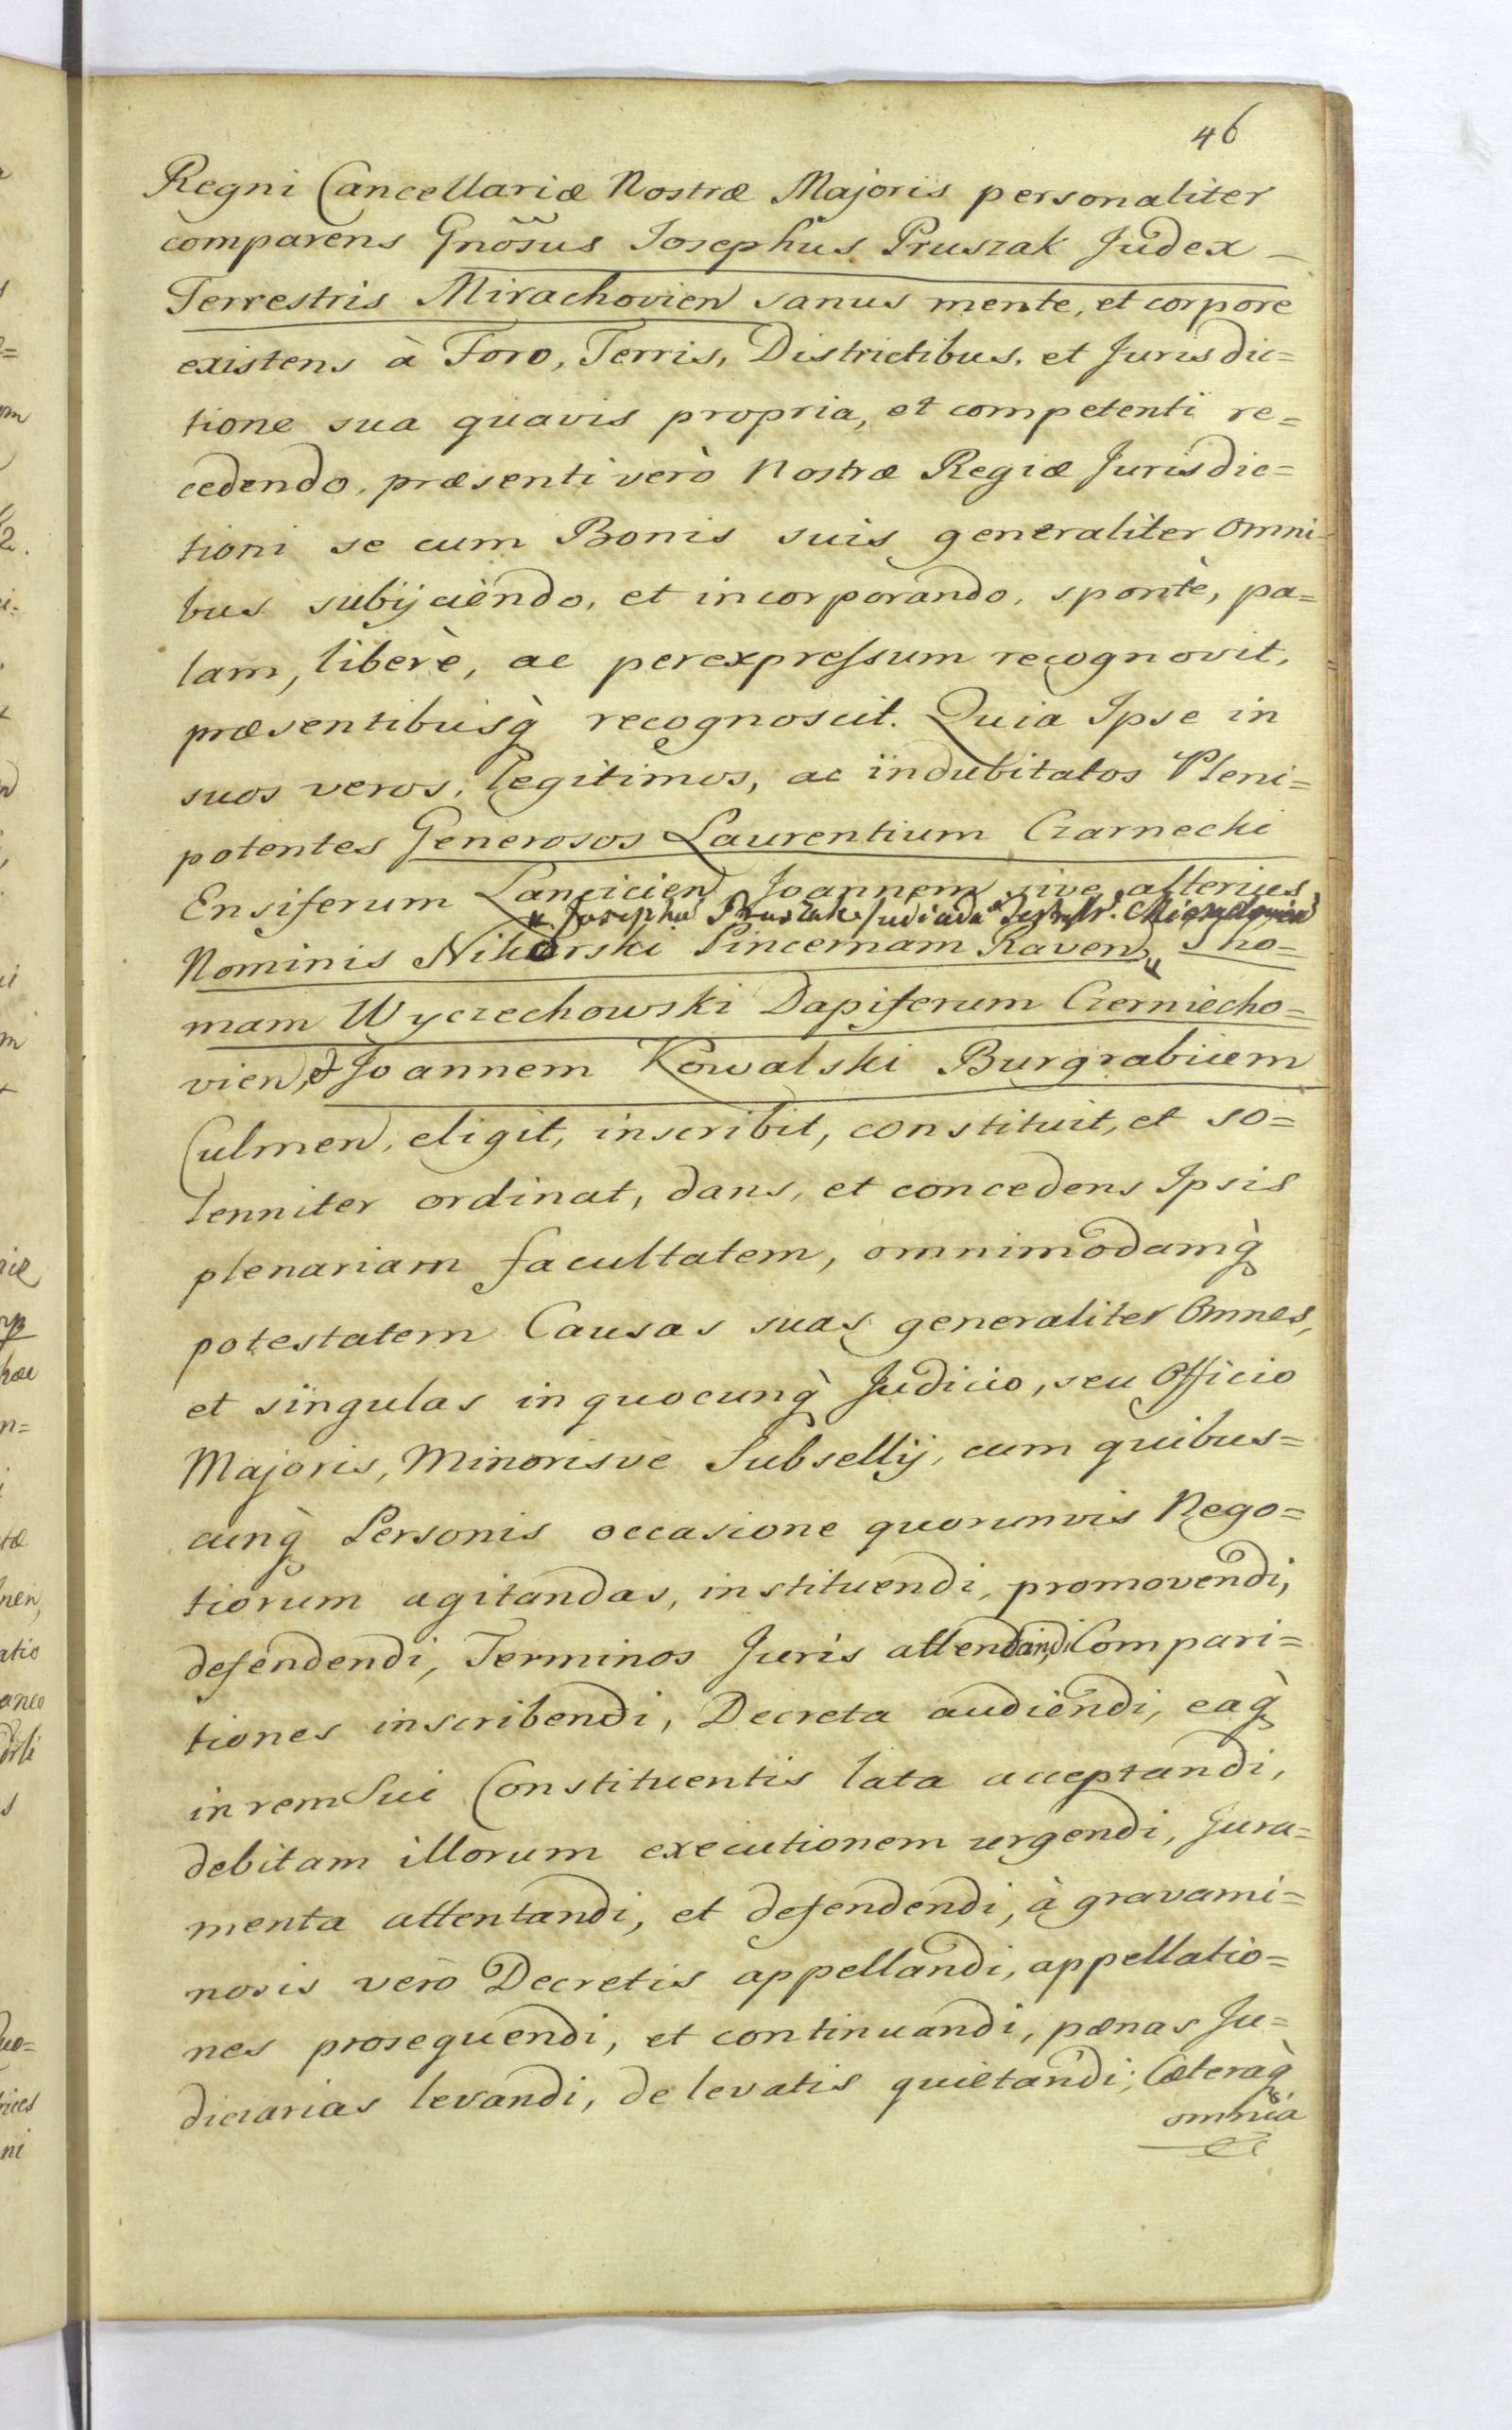 46
Regni Cancellariæ Nostræ Majoris personaliter
comparens Gnosus Josephus Pruszak Judex
Terrestris Mirachovien sanus mente, et corpore
existens à Foro, Terris, Districtibus, et Jurisdic=
tione sua quavis propria, et competenti re=
cedendo, præsenti verò Nostræ Regiæ Jurisdic=
tioni se cum Bonis suis generaliter Omni=
bus subijciendo, et incorporando, spontè, pa=
lam, liberè, ac perexpressum recognovit,
præsentibusq̀ recognoscit. Quia Ipse in
suos veros, legitimos, ac indubitatos Pleni=
potentes Generosos Laurentium Czarnecki
Ensiferum Lancicien Joannem sive alterius
Josephũ Pruszak Judicida Mirachovien
Nominis Nikorski Pincernam Raven, Tho=
mam Wyczechowski Dapiferum Czerniecho=
vien, et Joannem Kowalski Burgrabium
Culmen, eligit, inscribit, constituit, et so=
lenniter ordinat, dans, et concedens Ipsis
plenariam facultatem, omnimodamq̀
potestatem Causas suas generaliter Omnes,
et singulas in quocunq̀ Judicio, seu Officio
Majoris, Minorisvè Subsellij, cum quibus=
cunq̀ Personis occasione quorumvis Nego=
tiorum agitandas, instituendi, promovendi,
defendendi, Terminos Juris attendandi, Compari=
tiones inscribendi, Decreta audiendi, eaq̀
in rem Sui Constituentis lata acceptandi,
debitam illorum executionem urgendi, Jura=
menta attentandi, et defendendi, à gravami=
nosis vero Decretis appellandi, appellatio=
nes prosequendi, et continuandi, pænas Ju=
diciarias levandi, de levatis quietandi, Cæteraq̀
omnia